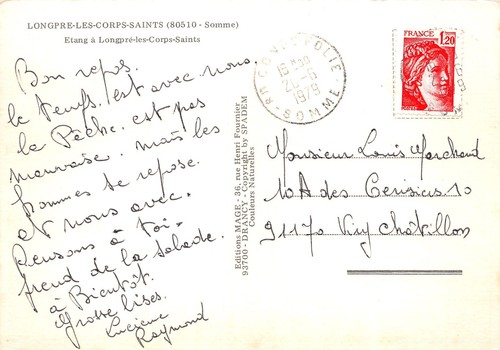 LONGPRE-LES-CORPS-SAINTS (80510 - Somme)
Etang à Longpré-les-Corps-Saints
Bon repos.
le temps est avec nous.
la Pêche est pas
mauvaise, mais les
hommes se repose.
et nous avec.
Pensons à toi.
prend de la salade.
à Bientôt.
Grosse bises.
Lucienne
Raymond
Editions MAGE - 36, rue Henri Fournier
93700 - DRANCY - Copyright by SPADEM
Couleurs Naturelles
15 H30
21-6
1979
SOMME
FRANCE
1,20
Monsieur Louis Marchand
10 A des Cerisiers 10
91170 Viry Châtillon